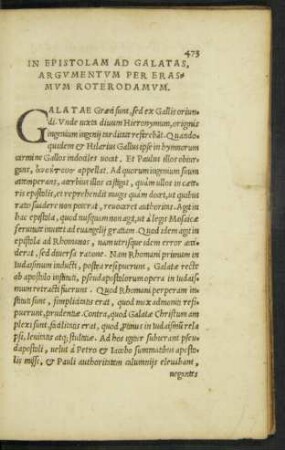 473
IN EPISTOLAM AD GALATAS,
ARGVMENTVM PER ERAS-
MVM ROTERODAMVM.
GALATAE Græci sunt, sed ex Gallis oriun-
di. Vnde iuxta diuum Hieronymum, originis
ingenium ingenij tarditate referebāt. Quando-
quidem & Hilarius Gallus ipse in hymnorum
carmine Gallos indociles uocat. Et Paulus illos obiur-
gans, appellat. Ad quorum ingenium suum
attemperans, acrius illos castigat, quàm ullos in cæte-
ris epistolis, et reprehendit magis quàm docet, ut quibus
ratio suadere non poterat, reuocaret authoritas. Agit in
hac epistola, quod nusquam non agit, ut à legis Mosaicæ
seruitute inuitet ad euangelij gratiam. Quod idem agit in
epistola ad Rhomanos, nam utrisque idem error acci-
derat, sed diuersa ratione. Nam Rhomani primum in
Iudaismum inducti, postea resipuerunt, Galatæ recte
ab apostolo instituti, pseudapostolorum opera in Iudais-
mum retracti fuerunt. Quod Rhomani perperam in-
stituti sunt, simplicitatis erat, quod mox admoniti resi-
puerunt, prudentiæ. Contra, quod Galatæ Christum am
plexi sunt, facilitatis erat, quod rursus in Iudaismū rela
psi, leuitatis atq; stultitiæ. Ad hos igitur subierant pseu-
dapostoli, uelut à Petro & Iacobo summatibus aposto-
lis missi, & Pauli authoritatem calumnijs eleuabant,
negantes